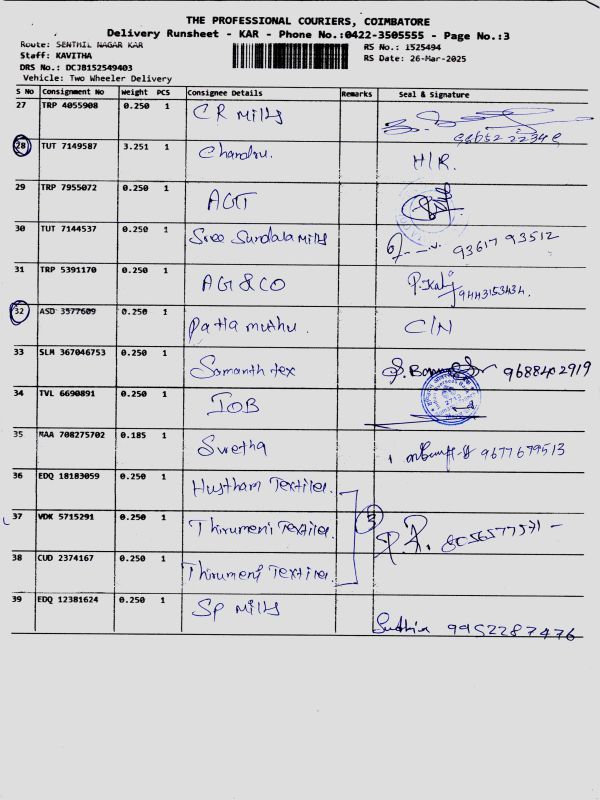 THE PROFESSIONAL COURIERS, COIMBATORE
Delivery Runsheet - KAR - Phone No.:0422-3505555 - Page No.:3
Route: SENTHIL NAGAR KAR
RS No.: 1525494
Staff: KAVITHA
RS Date: 26-Mar-2025
DRS No.: DCJB152549403
Vehicle: Two Wheeler Delivery
S No Consignment No Weight PCS Consignee Details Remarks Seal & Signature
27 TRP 4055908 0.250 1 CR Mills
28 TUT 7149587 3.251 1 Chandru. H/R.
29 TRP 7955072 0.250 1 AGT
30 TUT 7144537 0.250 1 Sree Sundala Mills 93617 93512
31 TRP 5391170 0.250 1 AG & CO P. Kali 9443153434.
32 ASD 3577609 0.250 1 Patta muthu. C/N
33 SLM 367046753 0.250 1 Samanth tex 9688402919
34 TVL 6690891 0.250 1 IOB
35 MAA 708275702 0.185 1 Swetha 9677679513
36 EDQ 18183059 0.250 1 Hustham Textiles.
37 VDK 5715291 0.250 1 Thirumeni Textiles. 3 P.R. 8056577571 -
38 CUD 2374167 0.250 1 Thirumeni Textiles.
39 EDQ 12381624 0.250 1 Sp Mills 9952287476